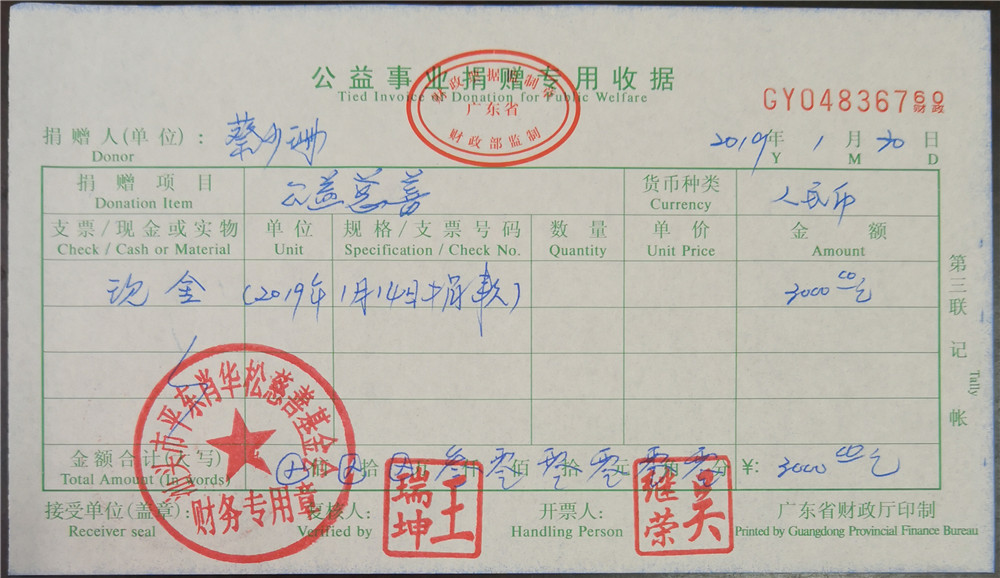 公益事业捐赠专用收据
Tied Invoice of Donation for Public Welfare
财政票据监制章
广东省
财政部监制
GY04836760
财政
捐赠人(单位)：蔡少珊 2019年1月30日
Donor Y M D
捐赠项目 公益慈善 货币种类 人民币
Donation Item Currency
支票/现金或实物 单位 规格/支票号码 数量 单价 金额
Check / Cash or Material Unit Specification / Check No. Quantity Unit Price Amount
现金 (2019年1月14日捐款) 3000.00元
第三联 记帐
Tally
金额合计(大写) ⊕佰⊕拾⊕万叁仟零佰零拾零元零角零分 ¥: 3000.00元
Total Amount (In words)
汕头市平东肖华松慈善基金会
财务专用章
接受单位(盖章): 复核人: 王瑞坤 开票人: 吴继荣 广东省财政厅印制
Receiver seal Verified by Handling Person Printed by Guangdong Provincial Finance Bureau